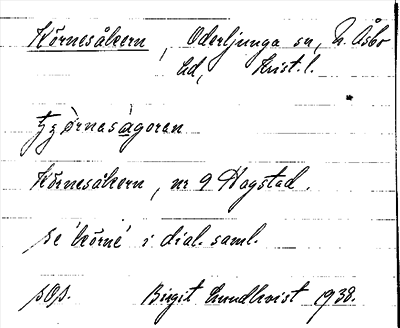 Körnesåkern, Oderljunga sn, N. Åsbo
hd, Krist. l.
tʒörnasågoran
Körnesåkern, nr 9 Hagstad.
se 'körne' i dial. saml.
sOp. Birgit Lundkvist 1938.